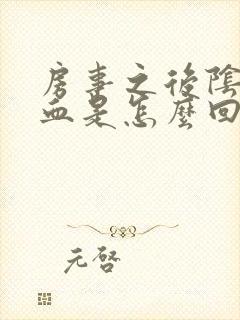 房事之後陰
血是怎麼回
元啓